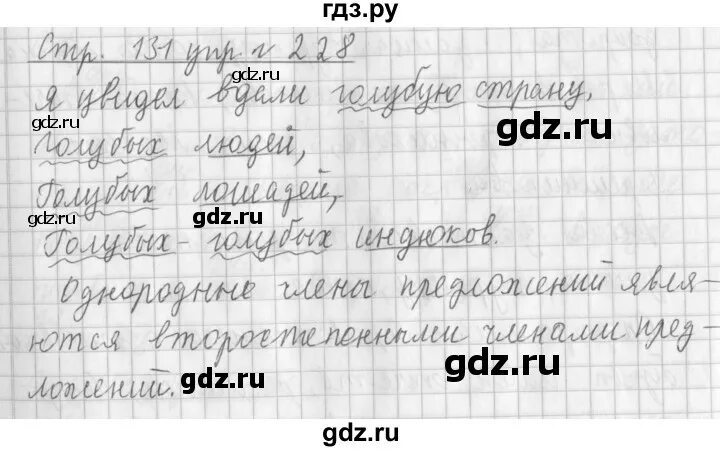 гдз.ру
Стр. 131 упр. 228
gdz.ru
Я увидел вдали голубую страну,
gdz.ru
gdz.ru
голубых людей,
gdz.ru
Голубых лошадей,
gdz.ru
gdz.ru
Голубых-голубых индюков.
Однородные члены предложений явля-
ются второстепенными членами пред-
gdz.ru
ложений.
gdz.ru
gdz.ru